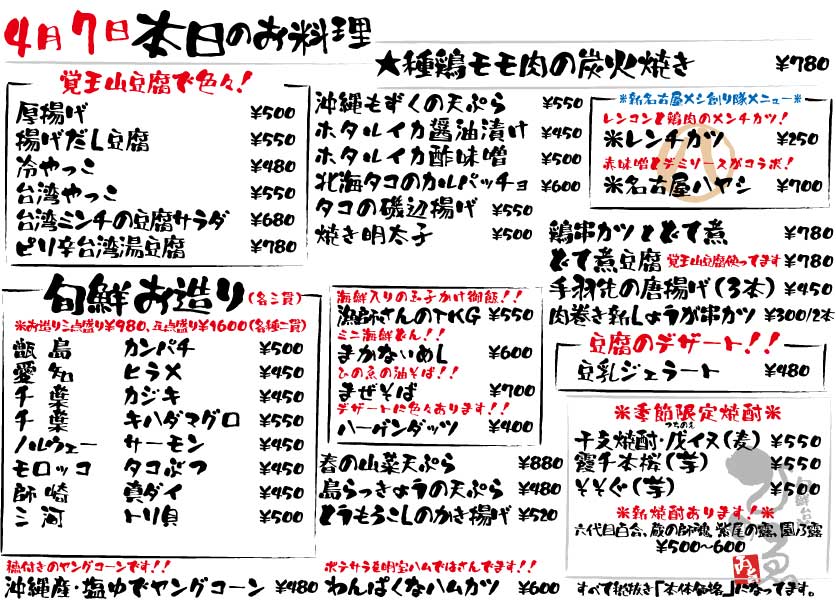 4月7日本日のお料理
★種鶏モモ肉の炭火焼き ¥780
覚王山豆腐で色々！
厚揚げ ¥500
揚げだし豆腐 ¥550
冷やっこ ¥480
台湾やっこ ¥550
台湾ミンチの豆腐サラダ ¥680
ピリ辛台湾湯豆腐 ¥780
沖縄もずくの天ぷら ¥550
ホタルイカ醤油漬け ¥450
ホタルイカ酢味噌 ¥500
北海タコのカルパッチョ ¥600
タコの磯辺揚げ ¥550
焼き明太子 ¥500
※新名古屋メシ創り隊メニュー※
レンコンと鶏肉のメンチカツ！
※レンチカツ ¥250
赤味噌とデミソースがコラボ！
※名古屋ハヤシ ¥700
鶏串カツとどて煮 ¥780
どて煮豆腐 覚王山豆腐使ってます ¥780
手羽先の唐揚げ(3本) ¥450
肉巻き新しょうが串カツ ¥300/2本
旬鮮お造り(各二貫)
※お造り三点盛り¥980、五点盛り¥1600(各種二貫)
甑島 カンパチ ¥500
愛知 ヒラメ ¥450
千葉 カジキ ¥450
千葉 キハダマグロ ¥550
ノルウェー サーモン ¥450
モロッコ タコぶつ ¥450
師崎 真ダイ ¥450
三河 トリ貝 ¥500
海鮮入りの玉子かけ御飯！！
漁師さんのTKG ¥550
ミニ海鮮どん！！
まかないめし ¥600
ひの魚の油そば！！
まぜそば ¥700
デザートに色々あります！！
ハーゲンダッツ ¥400
春の山菜天ぷら ¥880
島らっきょうの天ぷら ¥480
とうもろこしのかき揚げ ¥520
豆腐のデザート！！
豆乳ジェラート ¥480
※季節限定焼酎※
つちのえ
干支焼酎・戊イヌ(麦) ¥550
霞千本桜(芋) ¥550
そそぐ(芋) ¥500
※新焼酎あります！※
六代目百合、蔵の師魂、紫尾の露、園乃露
¥500~600
穂付きのヤングコーンです！！
沖縄産・塩ゆでヤングコーン ¥480
ポテサラを明宝ハムではさんでます！！
わんぱくなハムカツ ¥600
すべて税抜き「本体価格」になってます。
旬鮮台所